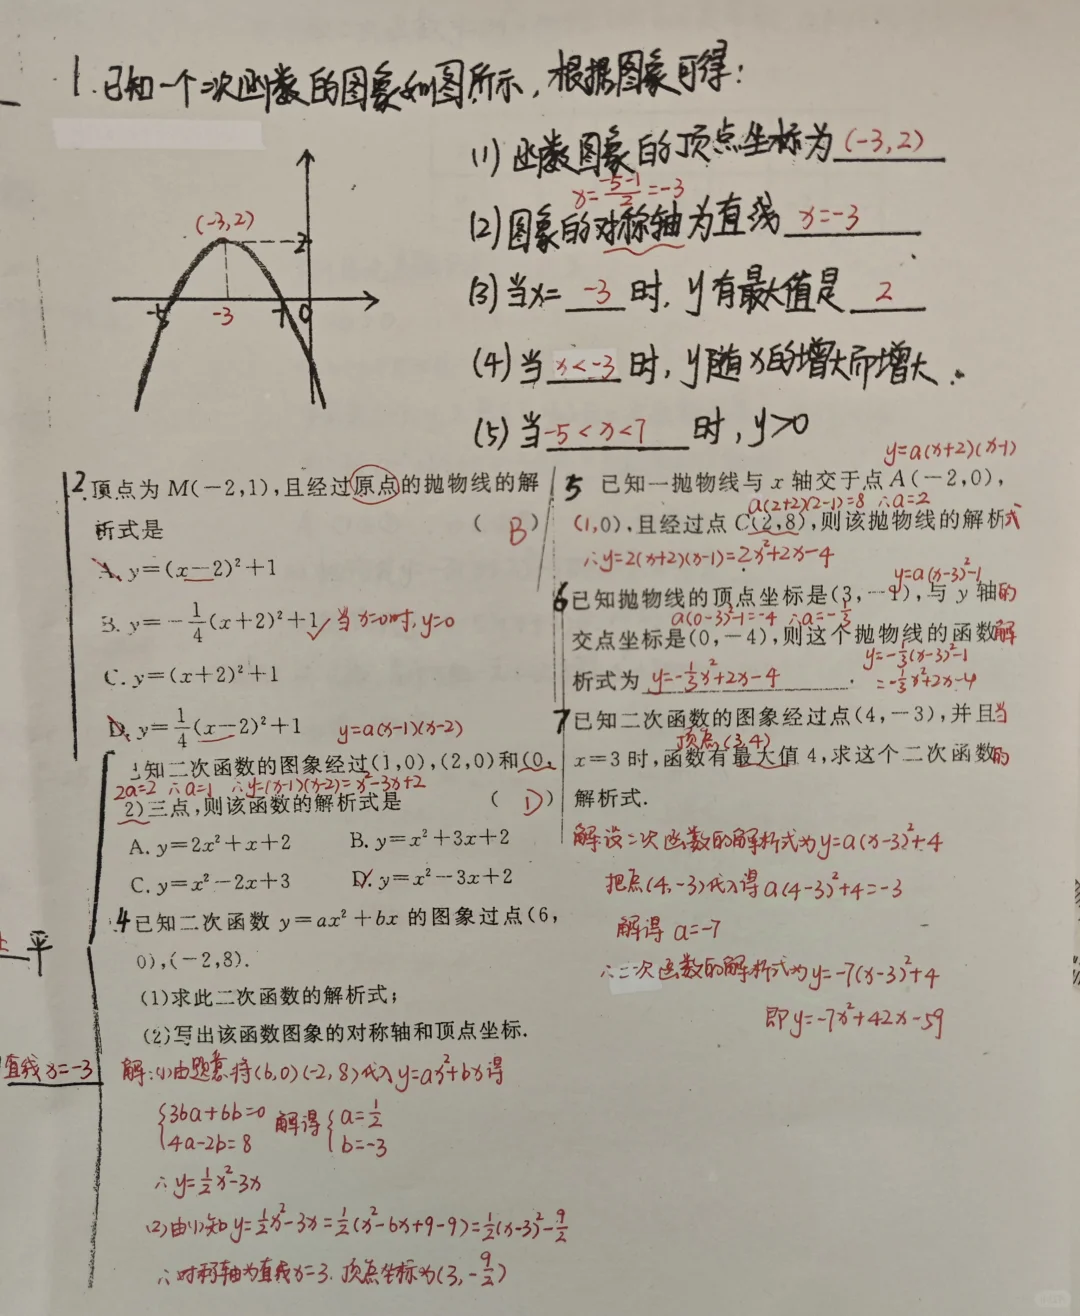 1.已知一个二次函数的图象如图所示,根据图象可得:
(-3,2)
2
-5
-3
-1
0
(1)函数图象的顶点坐标为(-3,2)
x=\frac{-5-1}{2}=-3
(2)图象的对称轴为直线 x=-3
(3)当x= -3 时,y有最大值是 2
(4)当 x<-3 时,y随x的增大而增大.
(5)当-5<x<7 时,y>0
2.顶点为 M(-2,1),且经过原点的抛物线的解
析式是 ( B )
A. y=(x-2)²+1
B. y=-\frac{1}{4}(x+2)²+1 ✓当x=0时,y=0
C. y=(x+2)²+1
D. y=\frac{1}{4}(x-2)²+1 y=a(x-1)(x-2)
知二次函数的图象经过(1,0),(2,0)和(0,
2a=2 ∴a=1 ∴y=(x-1)(x-2)=x²-3x+2
2)三点,则该函数的解析式是 ( D )
A. y=2x²+x+2 B. y=x²+3x+2
C. y=x²-2x+3 D. y=x²-3x+2
4 已知二次函数 y=ax²+bx 的图象过点(6,
0),(-2,8).
(1)求此二次函数的解析式;
(2)写出该函数图象的对称轴和顶点坐标.
平
直线x=-3
解:(1)由题意将(6,0)(-2,8)代入y=ax²+bx得
{36a+6b=0
4a-2b=8
解得{a=\frac{1}{2}
b=-3
∴y=\frac{1}{2}x²-3x
(2)由(1)知y=\frac{1}{2}x²-3x=\frac{1}{2}(x²-6x+9-9)=\frac{1}{2}(x-3)²-\frac{9}{2}
∴对称轴为直线x=3.顶点坐标为(3,-\frac{9}{2})
y=a(x+2)(x-1)
5 已知一抛物线与 x 轴交于点 A(-2,0),
a(2+2)(2-1)=8 ∴a=2
(1,0),且经过点 C(2,8),则该抛物线的解析式
∴y=2(x+2)(x-1)=2x²+2x-4
y=a(x-3)²-1
6 已知抛物线的顶点坐标是(3,-1),与 y 轴的
a(0-3)²-1=-4 ∴a=-\frac{1}{3}
交点坐标是(0,-4),则这个抛物线的函数解
y=-\frac{1}{3}(x-3)²-1
析式为 y=-\frac{1}{3}x²+2x-4 .
=-\frac{1}{3}x²+2x-4
7 已知二次函数的图象经过点(4,-3),并且当
顶点(3,4)
x=3 时,函数有最大值 4,求这个二次函数的
解析式.
解设二次函数的解析式为y=a(x-3)²+4
把点(4,-3)代入得a(4-3)²+4=-3
解得 a=-7
∴二次函数的解析式为y=-7(x-3)²+4
即y=-7x²+42x-59